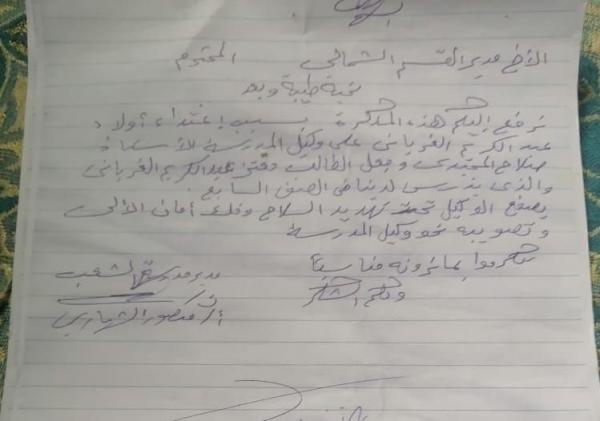 الأخ مدير القسم الشمالي المحترم
تحية طيبة وبعد
نرفع إليكم هذه المذكرة بسبب إعتداء أولاد
عبد الكريم الغرباني على وكيل المدرسة الأستاذ
صلاح المجيدي وجعل الطالب عبد الكريم الغرباني
والذي يدرس لدينا في الصف السابع
يصفع الوكيل تحت تهديد السلاح وفك أمان الآلي
وتصويبه نحو وكيل المدرسة
تكرموا بما ترونه مناسباً
ولكم الشكر
مدير مدرسة الشعب
أ/ منصور